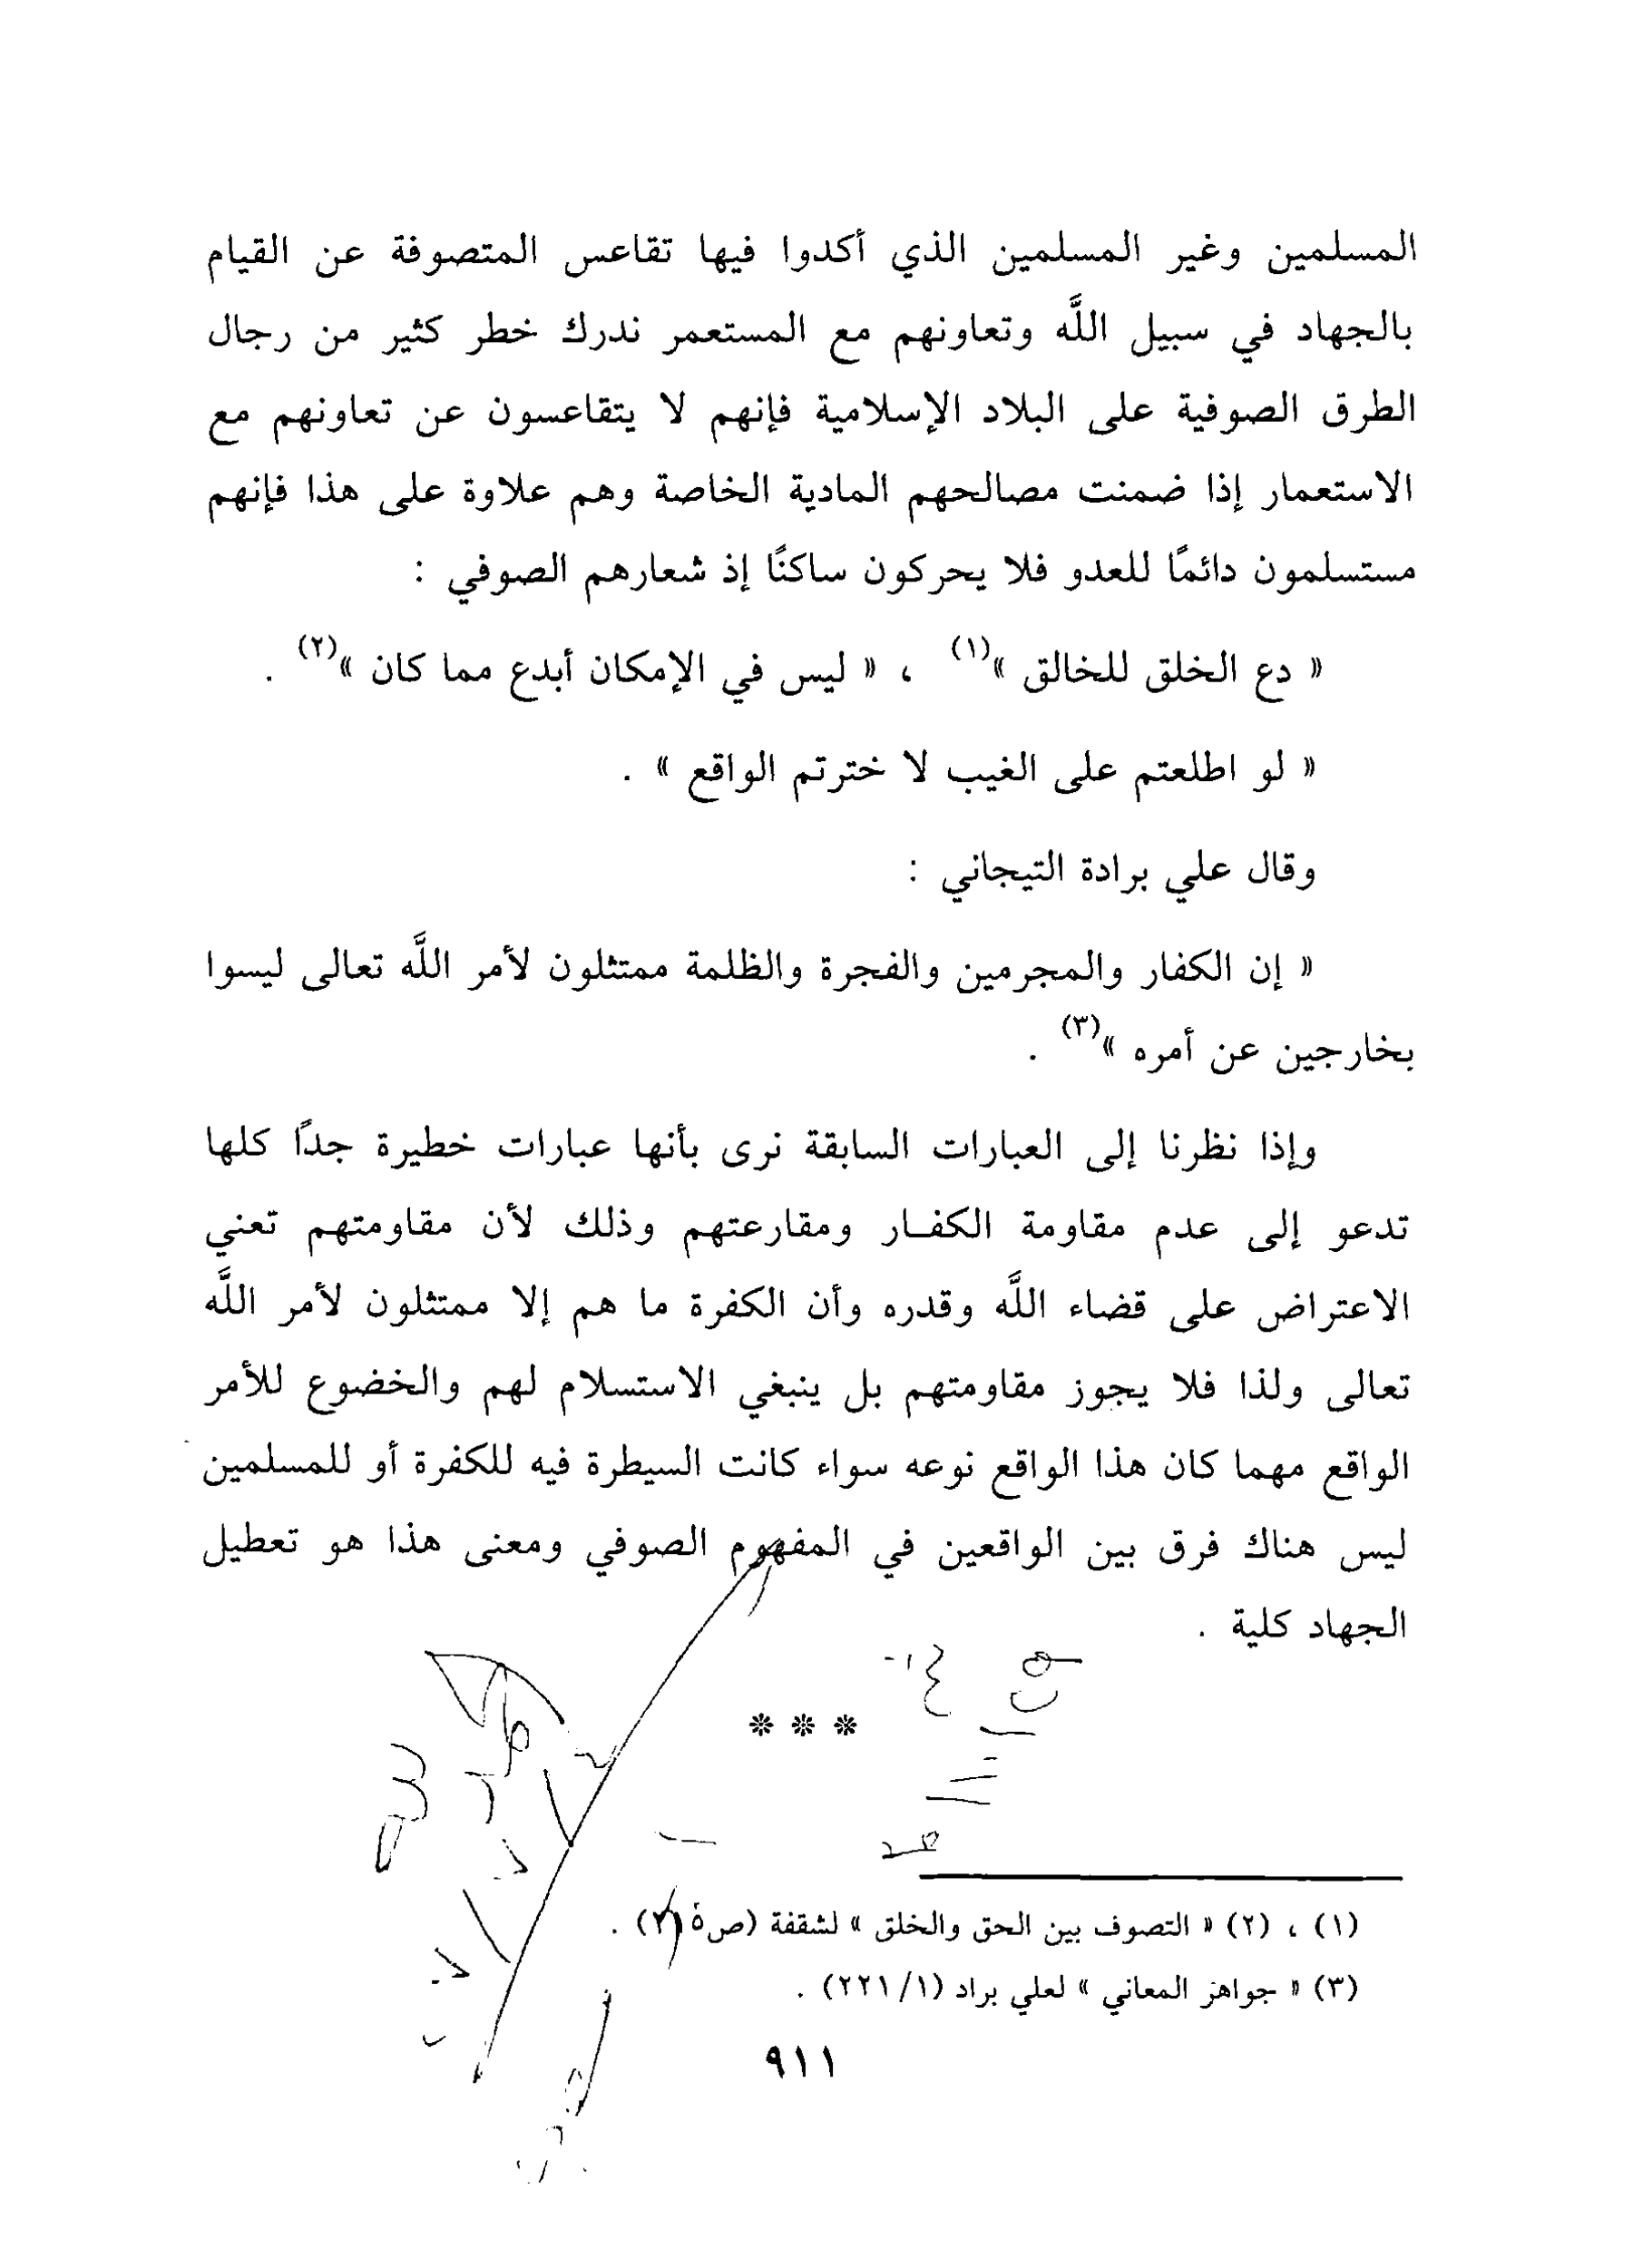 المسلمين وغير المسلمين الذي أكدوا فيها تقاعس المتصوفة عن القيام
بالجهاد في سبيل اللَّه وتعاونهم مع المستعمر ندرك خطر كثير من رجال
الطرق الصوفية على البلاد الإسلامية فإنهم لا يتقاعسون عن تعاونهم مع
الاستعمار إذا ضمنت مصالحهم المادية الخاصة وهم علاوة على هذا فإنهم
مستسلمون دائمًا للعدو فلا يحركون ساكنًا إذ شعارهم الصوفي :
« دع الخلق للخالق »(١) ، « ليس في الإمكان أبدع مما كان »(٢) .
« لو اطلعتم على الغيب لا خترتم الواقع » .
وقال علي برادة التيجاني :
« إن الكفار والمجرمين والفجرة والظلمة ممتثلون لأمر اللَّه تعالى ليسوا
بخارجين عن أمره »(٣) .
وإذا نظرنا إلى العبارات السابقة نرى بأنها عبارات خطيرة جدًا كلها
تدعو إلى عدم مقاومة الكفـار ومقارعتهم وذلك لأن مقاومتهم تعني
الاعتراض على قضاء اللَّه وقدره وأن الكفرة ما هم إلا ممتثلون لأمر اللَّه
تعالى ولذا فلا يجوز مقاومتهم بل ينبغي الاستسلام لهم والخضوع للأمر
الواقع مهما كان هذا الواقع نوعه سواء كانت السيطرة فيه للكفرة أو للمسلمين
ليس هناك فرق بين الواقعين في المفهوم الصوفي ومعنى هذا هو تعطيل
الجهاد كلية .
* * *
(١) ، (٢) « التصوف بين الحق والخلق » لشقفة
(٣) « جواهز المعاني » لعلي براد (٢٢١/١) .
٩١١